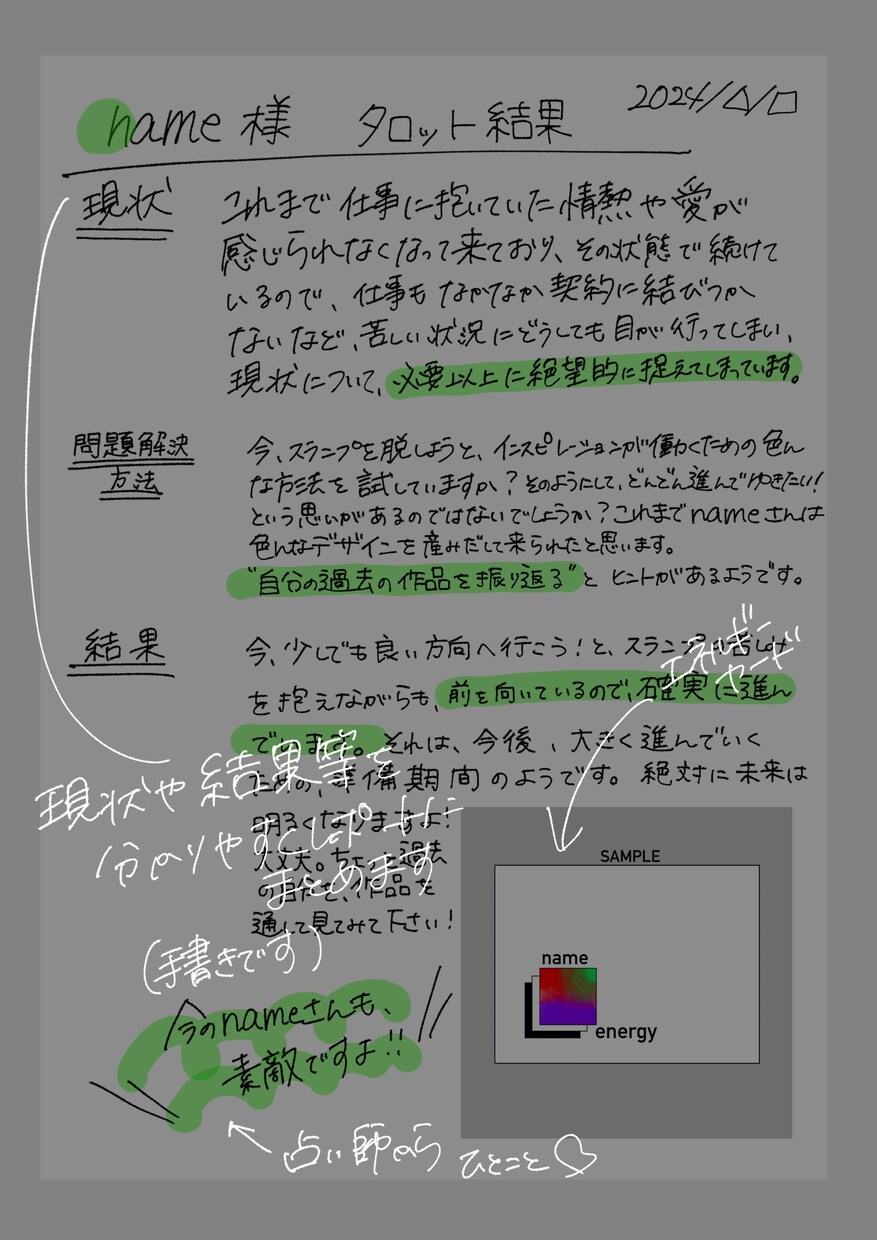 name 様 タロット結果
2024/△/□
現状
これまで仕事に抱いていた情熱や愛が
感じられなくなって来ており、その状態で続けて
いるので、仕事もなかなか契約に結びつか
ないなど、苦しい状況にどうしても目が行ってしまい、
現状について、必要以上に絶望的に捉えてしまっています。
問題解決
方法
今、スランプを脱しようと、インスピレーションが働くための色ん
な方法を試していますか？そのようにして、どんどん進んでゆきたい！
という思いがあるのではないでしょうか？これまでnameさんは
色んなデザインを産みだして来られたと思います。
"自分の過去の作品を振り返る"と ヒントがあるようです。
結果
今、少しでも良い方向へ行こう！と、スランプの苦しみ
を抱えながらも、前を向いているので、確実に進ん
でいます。それは、今後、大きく進んでいく
ための、準備期間のようです。絶対に未来は
明るくなりますよ！
大丈夫。ちょっと過去
の自分を、作品を
通して見てみて下さい！
エネルギー
カード
現状や結果等を
分かりやすくレポートに
まとめます
(手書きです)
SAMPLE
name
energy
今のnameさんも、
素敵ですよ!!
占い師から ひとこと♡